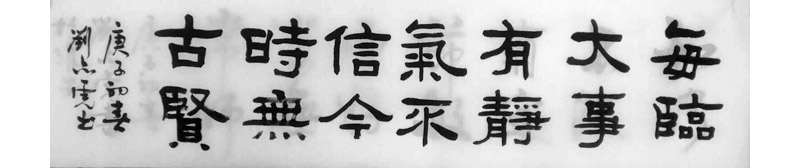 每臨
大事
有靜
氣不
信今
時無
古賢
庚子初春
劉虎书